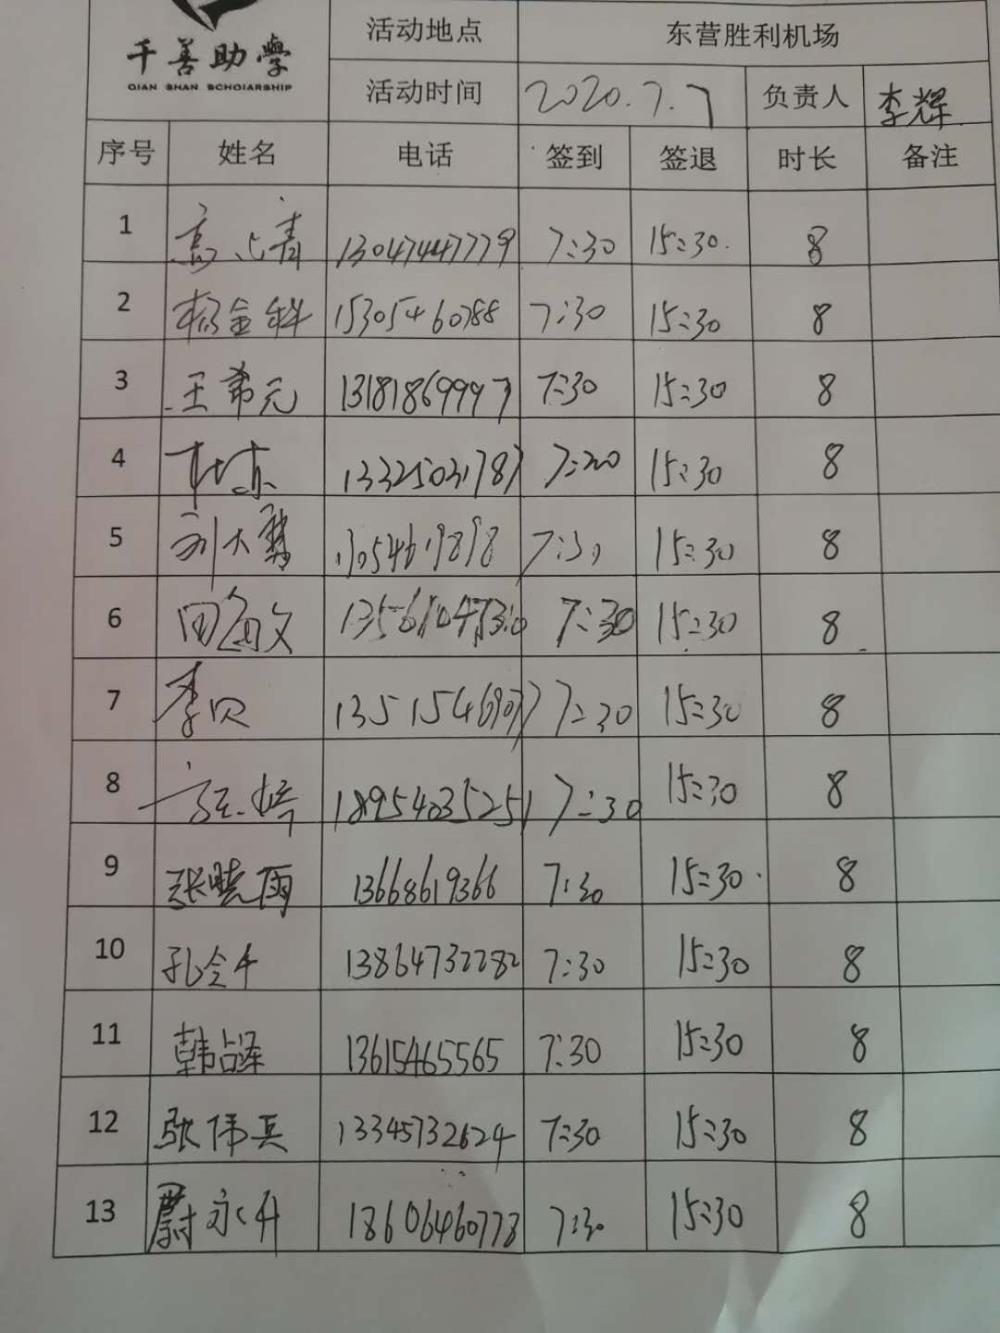 千善助學
QIAN SHAN SCHOIARSHIP
活动地点 东营胜利机场
活动时间 2020.7.7 负责人 李辉
序号 姓名 电话 签到 签退 时长 备注
1 13047447779 7:30 15:30 8
2 杨金科 15305460788 7:30 15:30 8
3 王希元 13181869997 7:30 15:30 8
4 13325031787 7:30 15:30 8
5 刘大 13054619898 7:30 15:30 8
6 田 文 7:30 15:30 8
7 李贝 7:30 15:30 8
8 18954035251 7:30 15:30 8
9 张晓雨 13668619366 7:30 15:30 8
10 孔令千 13864732282 7:30 15:30 8
11 韩 13615465565 7:30 15:30 8
12 张伟兵 13345732624 7:30 15:30 8
13 蔚永升 18606460778 7:30 15:30 8